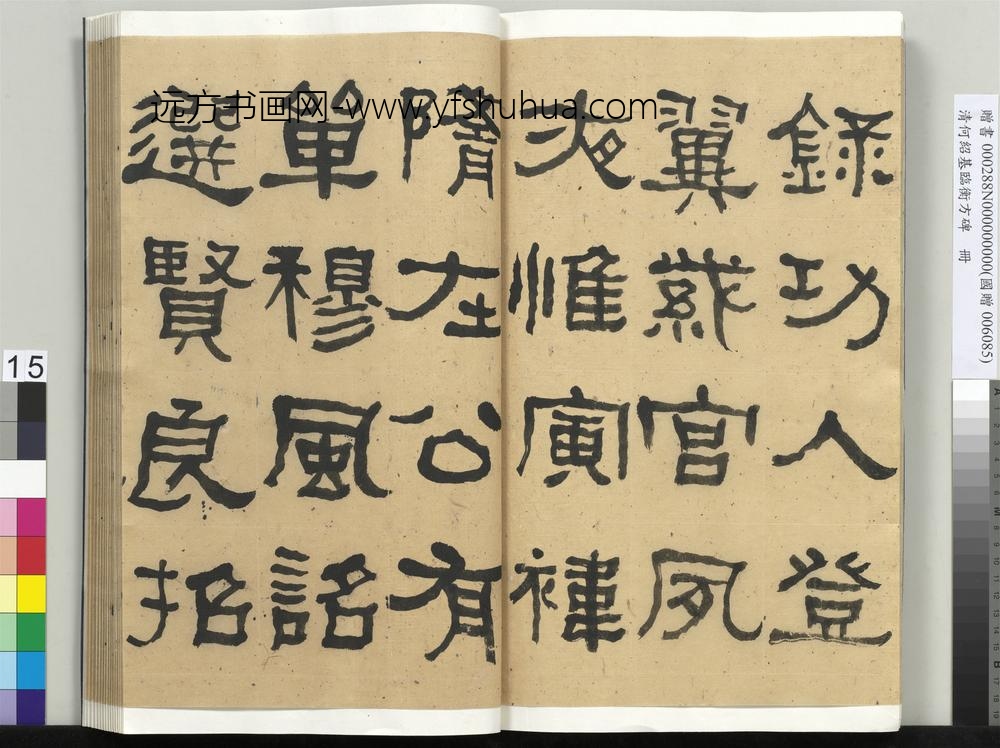 远方书画网-www.yfshuhua.com
錄功入登
翼紫宮夙
夜惟寅禕
隋在公有
單穆風詔
選賢良招
贈書 000288N000000000(國贈 006085)
清何紹基臨衡方碑 冊
15